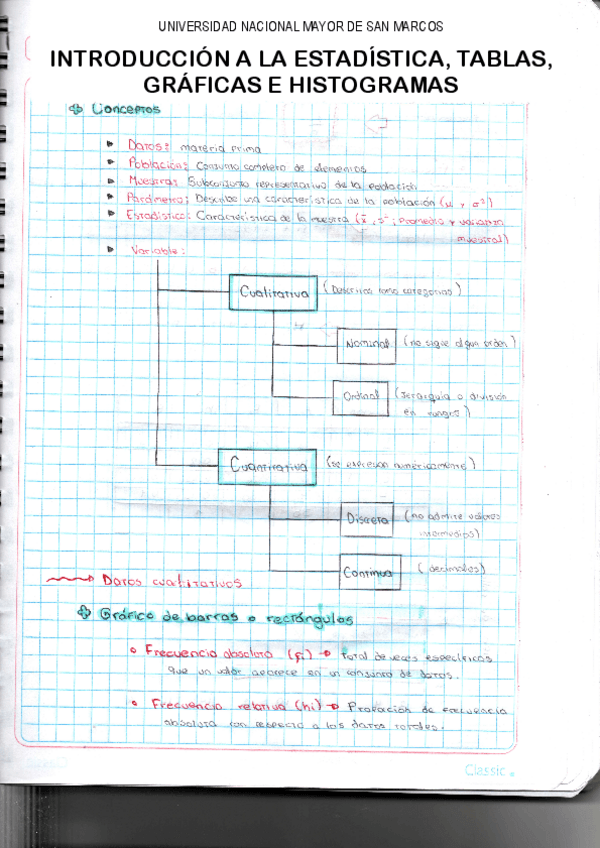 UNIVERSIDAD NACIONAL MAYOR DE SAN MARCOS
INTRODUCCIÓN A LA ESTADÍSTICA, TABLAS,
GRÁFICAS E HISTOGRAMAS
Conceptos
Datos: materia prima
Población: Conjunto completo de elementos
Muestra: Subconjunto representativo de la población
Parámetro: Describe una característica de la población (μ y σ²)
Estadístico: Característica de la muestra (x̄, s²; promedio y varianza
muestral)
Variable:
Cualitativa (Describen como categorías)
Nominal (no sigue algun orden)
Ordinal (Jerarquía o división
en rangos)
Cuantitativa (se expresan numéricamente)
Discreta (no admite valores
intermedios)
Continua (decimales)
Datos cualitativos
Gráfico de barras o rectángulos
Frecuencia absoluta (fi) → total de veces específicas
que un valor aparece en un conjunto de datos.
Frecuencia relativa (hi) → Proporción de frecuencia
absoluta con respecto a los datos totales.
Classic